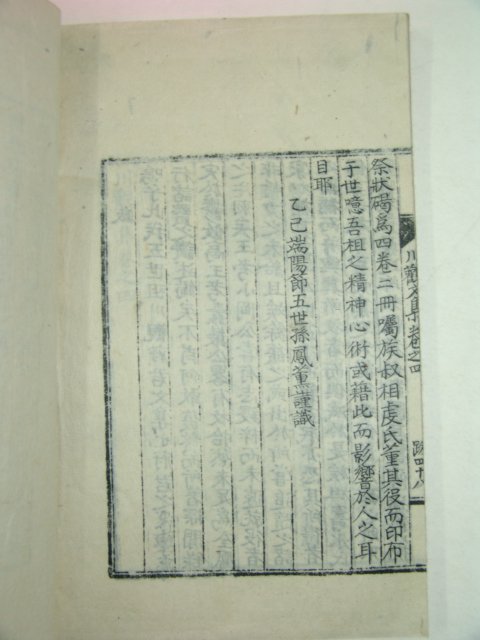 川觀文集卷之四
跋四十八
祭狀碣爲四卷二冊囑族叔相虔氏董其役而印布
于世噫吾祖之精神心術或藉此而影響於人之耳
目耶
乙己端陽節五世孫鳳董謹識